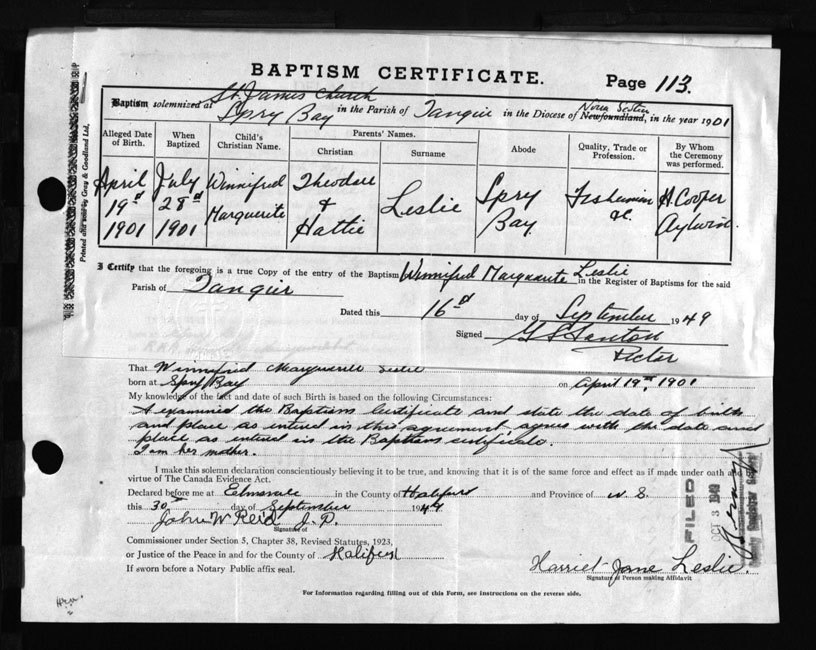 BAPTISM CERTIFICATE.
Page 113.
St. James Church
Baptism solemnized at Spry Bay in the Parish of Tangier in the Diocese of Newfoundland, in the year 1901
Nova Scotia
Alleged Date of Birth.
When Baptized
Child's Christian Name.
Parents' Names.
Christian
Surname
Abode
Quality, Trade or Profession.
By Whom the Ceremony was performed.
April 19th 1901
July 28th 1901
Winnifred Marguerite
Theodore & Hattie
Leslie
Spry Bay.
Fisherman &c.
H. Cooper Aylwin.
Printed and sold by Gray & Goodland Ltd.,
I Certify that the foregoing is a true Copy of the entry of the Baptism Winnifred Marguerite Leslie in the Register of Baptisms for the said
Parish of Tangier
Dated this 16th day of September 1949
Signed
Rector
That Winnifred Marguerite Leslie
born at Spry Bay on April 19th, 1901
My knowledge of the fact and date of such Birth is based on the following Circumstances:
I examined the Baptism Certificate and state the date of birth
and place as entered in this agreement agrees with the date and
place as entered in the Baptism certificate.
I am her mother.
I make this solemn declaration conscientiously believing it to be true, and knowing that it is of the same force and effect as if made under oath and
virtue of The Canada Evidence Act.
Declared before me at in the County of Halifax and Province of N. S.
this 30th day of September 1949
John W Reid J. P.
Signature of
Commissioner under Section 5, Chapter 38, Revised Statutes, 1923,
or Justice of the Peace in and for the County of Halifax
If sworn before a Notary Public affix seal.
FILED
OCT 3 1949
Harriet Jane Leslie.
Signature of Person making Affidavit
For Information regarding filling out of this Form, see instructions on the reverse side.